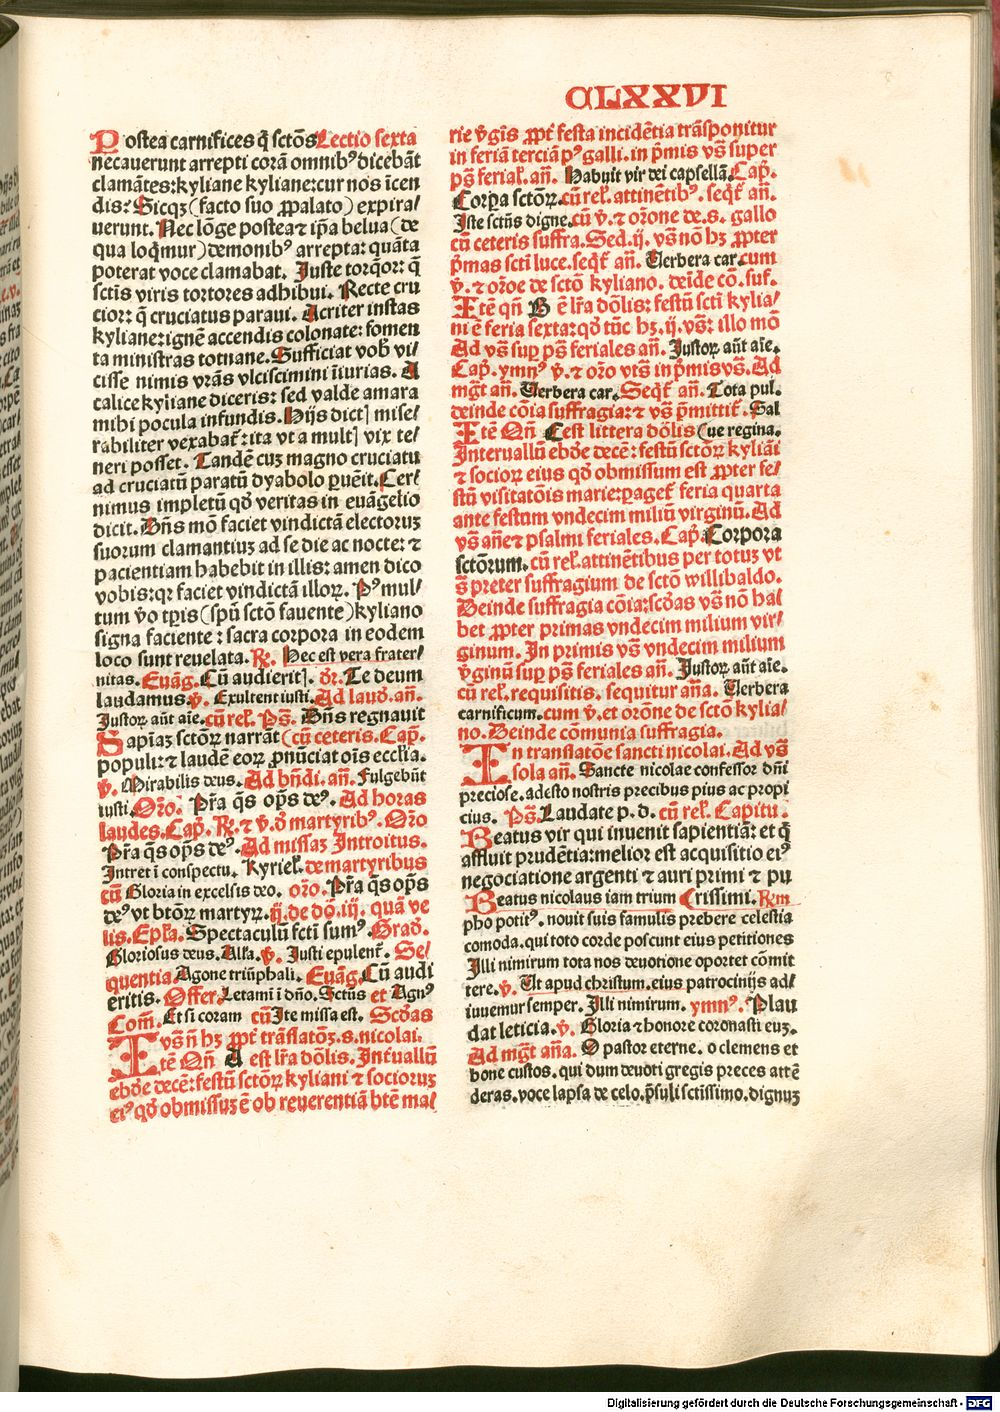 CLXXVI
Postea carnifices q̄ sctōs Lectio sexta
necauerunt arrepti corā omnibꝰ dicebāt
clamātes: kyliane kyliane: cur nos īcen
dis? Sicqꝫ (facto suo ꝓpalato) expira/
uerunt. Nec lōge postea ⁊ ip̄a belua (de
qua loq̄mur) demonibꝰ arrepta: quāta
poterat voce clamabat. Juste torq̄or: q̄
sctīs viris tortores adhibui. Recte cru
cior: q̄ cruciatus paraui. Acriter instas
kyliane: ignē accendis colonate: fomen
ta ministras totnane. Sufficiat vob̄ vi/
cisse nimis vrās vlciscimini īiurias. A
calice kyliane diceris: sed valde amara
mihi pocula infundis. Hijs dictꝭ mise/
rabiliter vexabat̄: ita vt a multꝭ vix te/
neri posset. Tandē cuꝫ magno cruciatu
ad cruciatū paratū dyabolo ꝑuēit. Cer/
nimus impletū qď veritas in euāgelio
dicit. Dn̄s mō faciet vindictā electoruꝫ
suorum clamantiuꝫ ad se die ac nocte: ⁊
pacientiam habebit in illis: amen dico
vobis: qꝛ faciet vindictā illoꝝ. Pꝰ mul/
tum v̄o tp̄ris (spū sctō fauente) kyliano
signa faciente: sacra corpora in eodem
loco sunt reuelata. ℟. Nec est vera frater/
nitas. Euāg. Cū audieritꝭ. v̄r. Te deum
laudamus. ℣. Exultent iusti. Ad laud̄. an̄.
Justoꝝ aūt aīe. cū rel̄. Ps̄. Dn̄s regnauit
Sapiāꝫ sctōꝝ narrāt (cū ceteris. Cap̄.
populi: ⁊ laudē eoꝝ ꝓnūciat oīs ecclīa.
℣. Mirabilis deus. Ad bn̄di. an̄. Fulgebūt
iusti. Or̄o. Pr̄a q̄s op̄s deꝰ. Ad horas
laudes. Cap̄. ℟. ⁊ ℣. d̄ martyribꝰ. Or̄o
Pr̄a q̄s op̄s deꝰ. Ad missaꝫ Introitus.
Intret ī conspectu. Kyriel̄. de martyribus
cū Gloria in excelsis deo. or̄o. Pr̄a q̄s op̄s
deꝰ vt btōꝝ martyꝝ. ij. de dō. iij. quā ve
lis. Ep̄la. Spectaculū fctī sumꝰ. Grad̄.
Gloriosus deus. Alla. ℣. Justi epulent̄. Se/
quentia Agone triūphali. Euāg. Cū audi
eritis. Offer. Letamī ī dn̄o. Sctūs et Agnꝰ
Com̄. Et si coram cū Ite missa est. Scd̄as
vs̄ n̄ hꝫ ꝓpt̄ trāslatōꝫ. s. nicolai.
Itē Qn̄ A est lr̄a dōlis. Int̄uallū
ebd̄e decē: festū sctōꝝ kyliani ⁊ socioruꝫ
eiꝰ qď obmissuꝫ ē ob reuerentiā btē ma/
rie v̄gīs ꝓpt̄ festa incidētia trāsponitur
in feriā terciā pꝰ galli. in p̄mis vs̄ super
ps̄ ferial̄. an̄. Habuit vir dei capsellā. Cap̄.
Corpa sctōꝝ. cū rel̄. attinētibꝰ. seqt̄ an̄.
Iste sctūs digne. cū ℣. ⁊ or̄one de. s. gallo
cū ceteris suffra. Sed. ij. vs̄ nō hꝫ ꝓpter
p̄mas sctī luce. seqt̄ an̄. Verbera car. cum
℣. ⁊ or̄oē de sctō kyliano. deīde cō. suf.
Itē qn̄ B ē lr̄a dōlis: festū sctī kylia/
ni ē feria sexta: qď tūc hꝫ. ij. vs̄: illo mō
Ad vs̄ suꝑ ps̄ feriales an̄. Justoꝝ aūt aīe.
Cap̄. ymnꝰ ℣. ⁊ or̄o vts̄ in p̄mis vs̄. Ad
mgt̄ an̄. Verbera car. Seqt̄ an̄. Tota pul.
deinde cōia suffragia: ⁊ vs̄ p̄mittit̄. Sal
Itē Qn̄ C est littera dōlis (ue regina.
Interuallū ebd̄e decē: festū sctōꝝ kyliāi
⁊ socioꝝ eius qď obmissum est ꝓpter fe/
stū visitatōis marie: paget̄ feria quarta
ante festum vndecim miliū virginū. Ad
vs̄ an̄e ⁊ psalmi feriales. Cap̄. Corpora
sctōrum. cū rel̄. attinētibus per totuꝫ vt
s̄ preter suffragium de sctō willibaldo.
Deinde suffragia cōia: scd̄as vs̄ nō ha/
bet ꝓpter primas vndecim milium vir/
ginum. In primis vs̄ vndecim milium
v̄ginū suꝑ ps̄ feriales an̄. Justoꝝ aūt aīe.
cū rel̄. requisitis. sequitur an̄a. Verbera
carnificum. cum ℣. et or̄one de sctō kylia/
no. Deinde cōmunia suffragia.
In translatōe sancti nicolai. Ad vs̄
sola an̄. Sancte nicolae confessor dn̄i
preciose. adesto nostris precibus pius ac propi
cius. Ps̄. Laudate p. d. cū rel̄. Capitu.
Beatus vir qui inuenit sapientiā: et q̄
affluit prudētia: melior est acquisitio eiꝰ
negociatione argenti ⁊ auri primi ⁊ pu
Beatus nicolaus iam trium (rissimi. ℟m
pho potitꝰ. nouit suis famulis prebere celestia
comoda. qui toto corde poscunt eius petitiones
Illi nimirum tota nos deuotione oportet cōmit
tere. ℣. Ut apud christum. eius patrocinijs ad/
iuuemur semper. Illi nimirum. ymnꝰ. Plau
dat leticia. ℣. Gloria ⁊ honore coronasti euꝫ.
Ad mgt̄ an̄a. O pastor eterne. o clemens et
bone custos. qui dum deuoti gregis preces attē
deras. voce lapsa de celo. p̄suli sctissimo. dignuꝫ
Digitalisierung gefördert durch die Deutsche Forschungsgemeinschaft - DFG